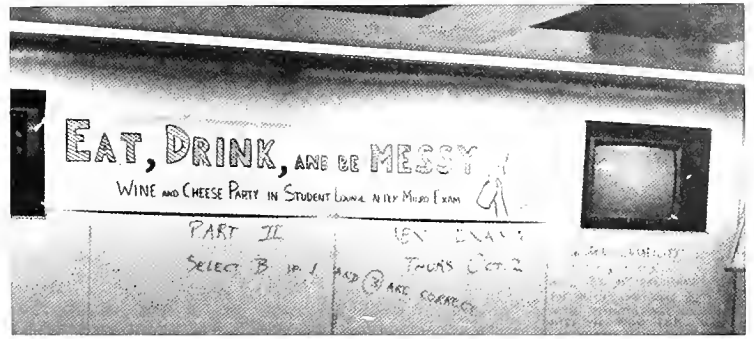 EAT, DRINK, AND BE MESSY
WINE AND CHEESE PARTY IN STUDENT LOUNGE AFTER MICRO EXAM
PART II
SELECT B IF 1 AND 3 ARE CORRECT
THURS OCT. 2